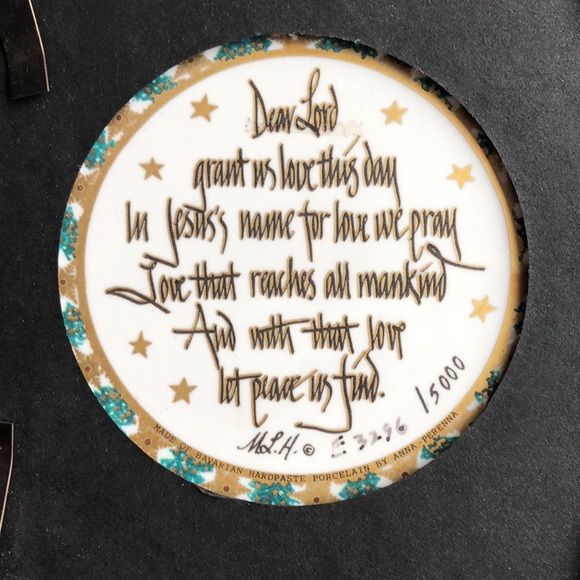 Dear Lord
grant us love this day
In Jesus's name for love we pray
Love that reaches all mankind
And with that love
let peace us find.
M.L.H. © E 3296 / 5000
MADE OF BAVARIAN HARDPASTE PORCELAIN BY ANNA PERENNA